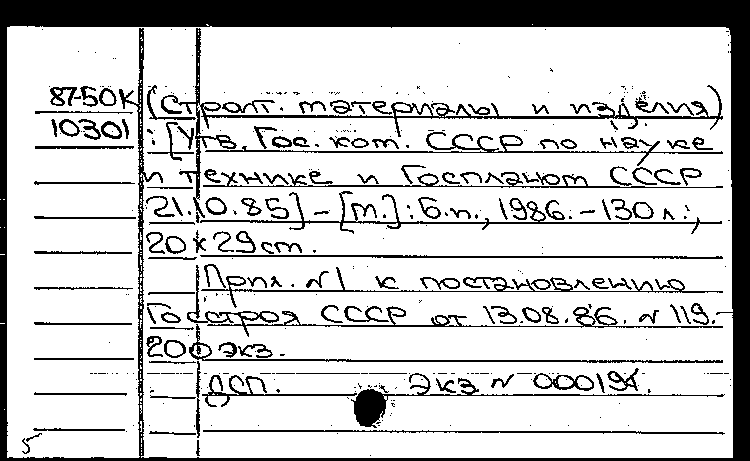 87-50К (Строит. материалы и изделия)
10301 : [Утв. Гос. ком. СССР по науке
и технике и Госпланом СССР
21.10.85] – [М.] : Б.и., 1986. – 130 л.;
20 х 29 см.
Прил. №1 к постановлению
Госстроя СССР от 13.08.86. № 119. –
200 экз.
ДСП. Экз № 000194.
5